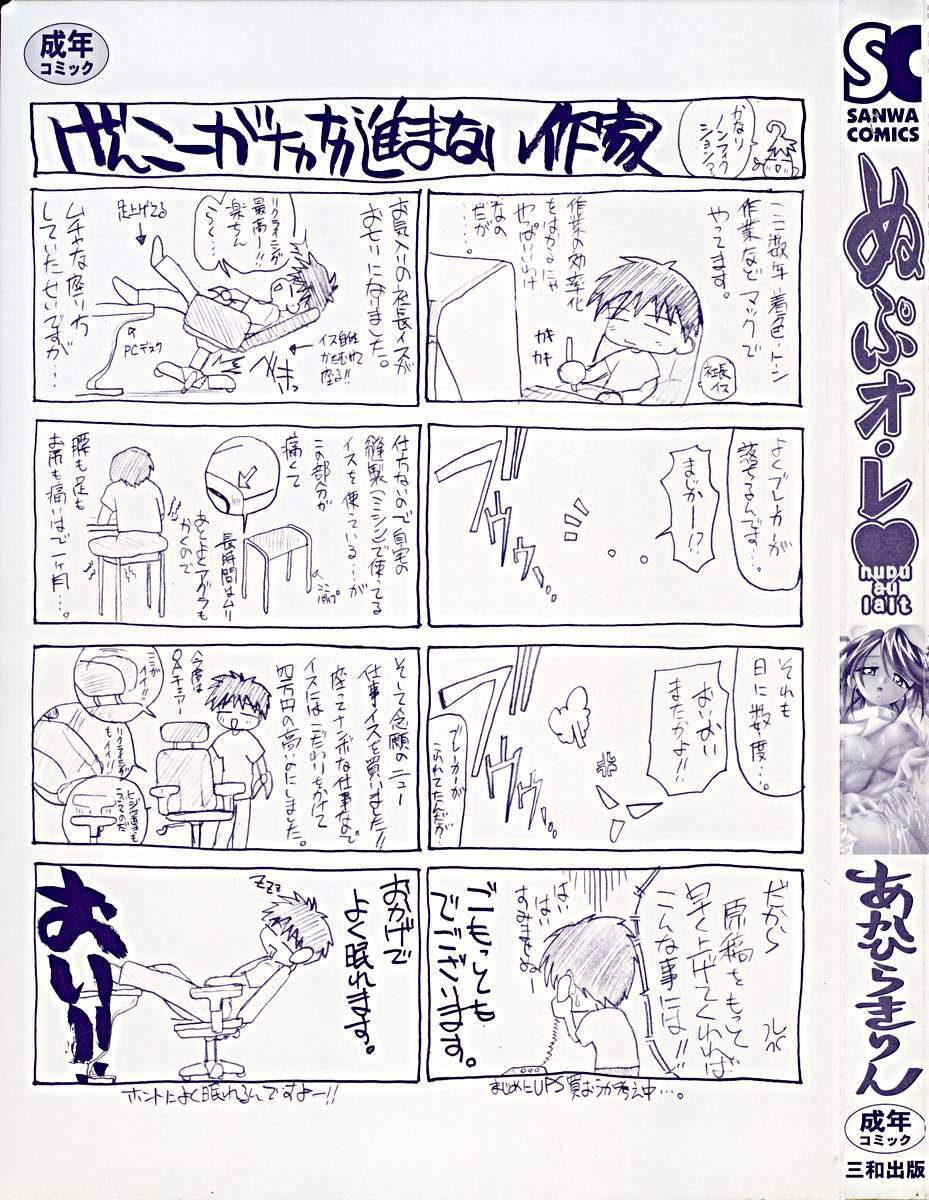 成年
コミック
げんこーがナカナカ進まない作家
かなり
ノンフィク
ション?
ここ数年着色・トーン
作業など マックで
やってます。
作業の効率化
をはかるにゃ
やっぱいいわけ
なの
だが
……
カキ
カキ
社長
イス
よくブレーカーが
落ちるんです…
まじかー!?
ブッ
それも
日に数度…
おいおい
またかよ!!
ブッ
ブレーカーが
だから
原稿をもって
早く上げてくれれば
こんな事には!!
はい
はい
すみません
ごもっとも
でございます。
まじめにUPS買おうか考え中…。
お気入りの社長イスが
おじゃんになりました。
リクライニングが
最高ー!!
楽ちん
足上げてる
↓
PCデスク
イス自体
かたむけて
座る!!
ムチャな座り方
していたせいですが…
仕方ないので自宅の
縫製(ミシン)で使ってる
イスを使っている…が
この部分が
痛くて
長時間はムリ
あとよくアグラも
かくので
腰も足も
お尻も痛いまで一ヶ月…。
そして念願のニュー
仕事イスを買いました!!
座ってナンボな仕事なので
イスにはこだわりをかけて
四万円の高いのにしました。
今度は
OAチェアー
ここが
イイ!!
リクライニングが
もイイ!!
おかげで
よく眠れます。
ZZZ
おい!!
ホントによく眠れるんですよー!!
SC
SANWA
COMICS
ぬぷオ・レ♥
nupu
au
lait
あかひらきりん
成年
コミック
三和出版